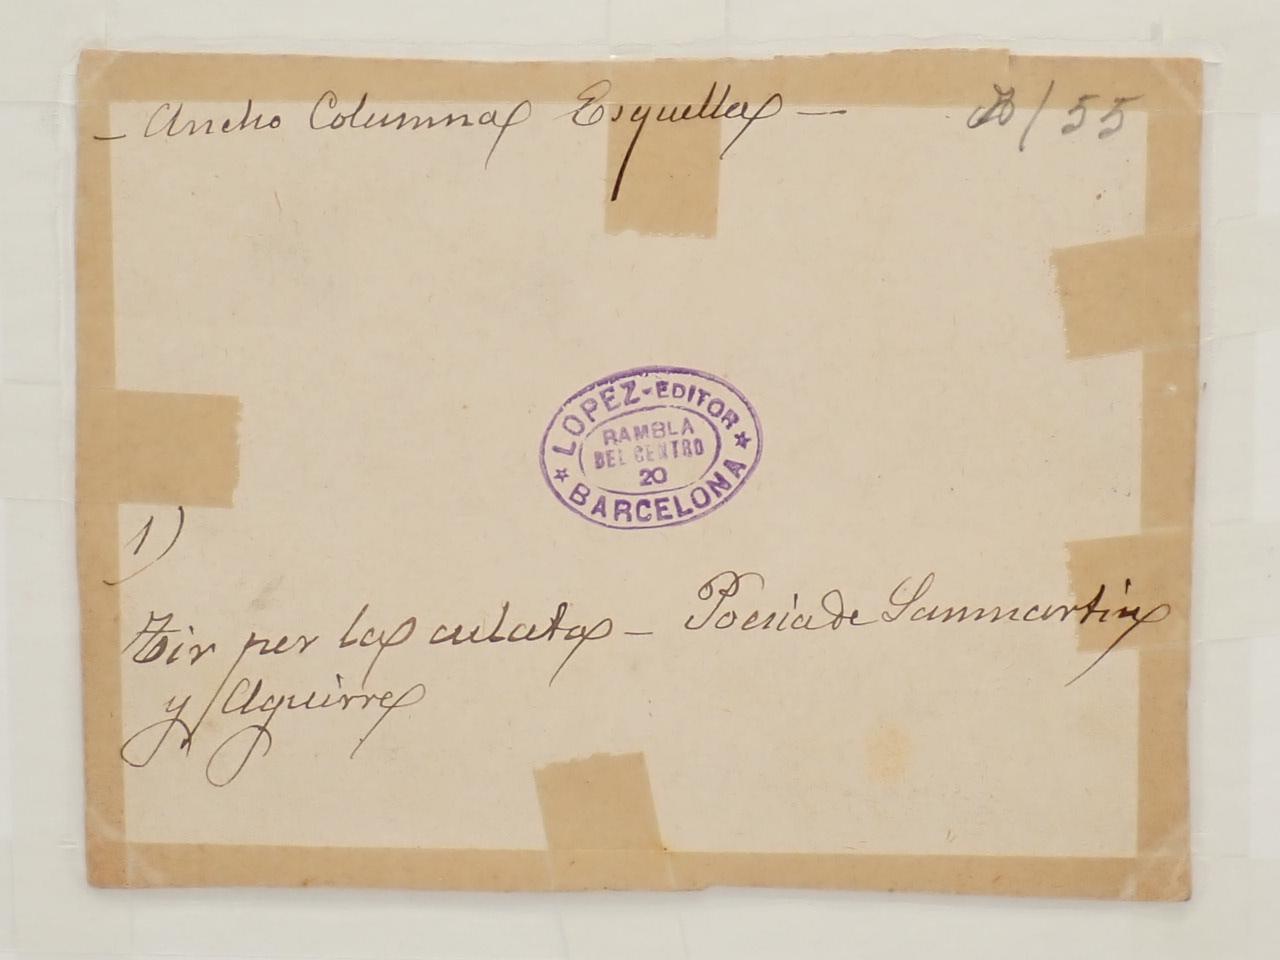 — Ancho Columna Esquella —
/ 55
LOPEZ-EDITOR
RAMBLA
DEL CENTRO
20
BARCELONA
1)
Tir per la culata — Poesia de Sanmartin
y Aguirre